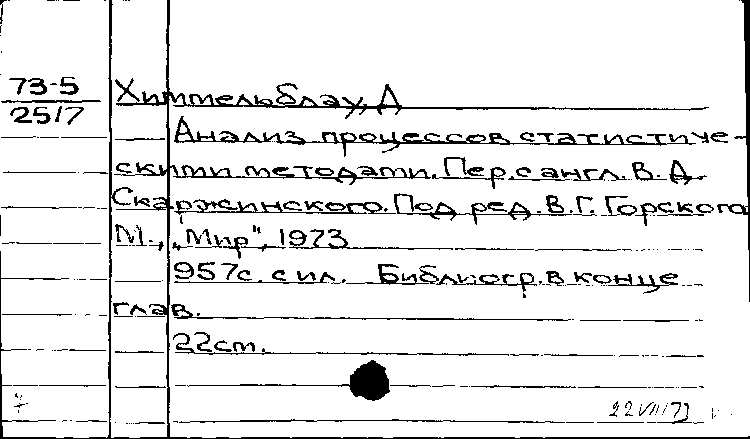 73-5
2517
Химмельблау, Д
Анализ процессов статистиче-
скими методами. Пер. с англ. В. Д.
Скаржинского. Под ред. В. Г. Горского
М., „Мир“, 1973
957с. с ил. Библиогр. в конце
глав.
22см.
22 VIII 73